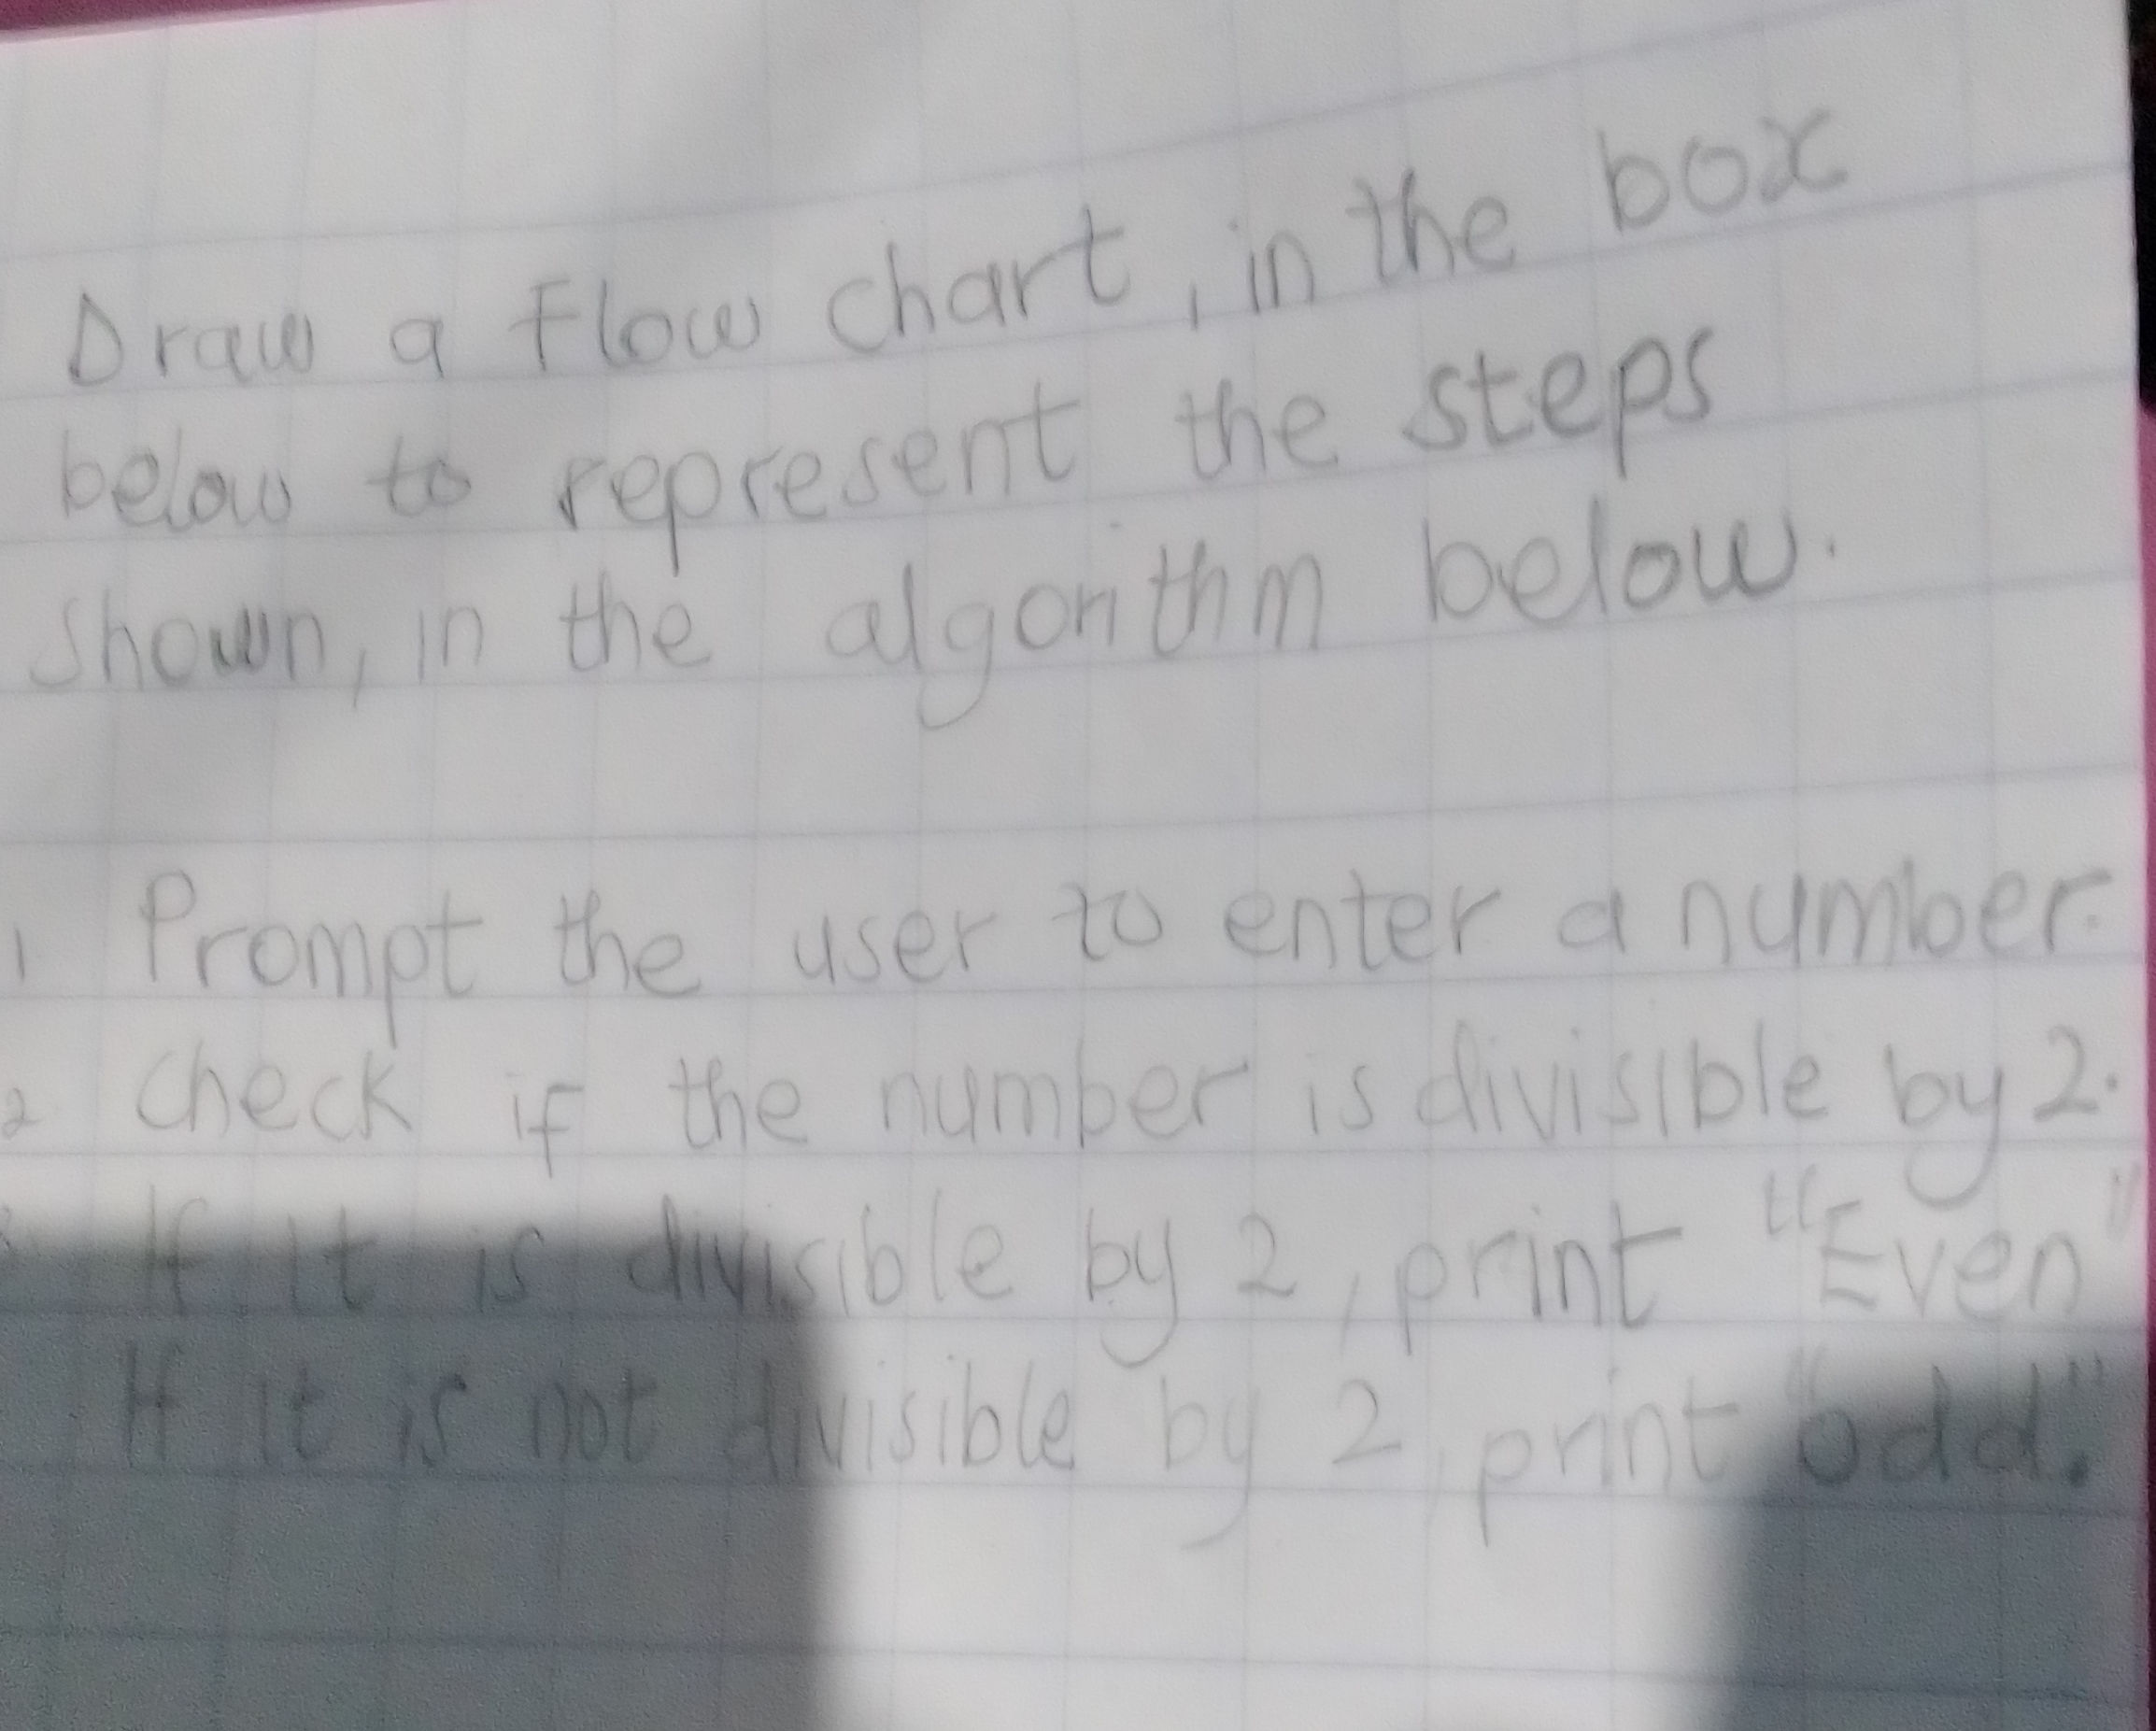 Draw a Flow chart, in the box
below to represent the steps
shown, in the algorithm below.
1 Prompt the user to enter a number.
2 Check if the number is divisible by 2.
If it is divisible by 2, print "Even"
If it is not divisible by 2, print "odd."